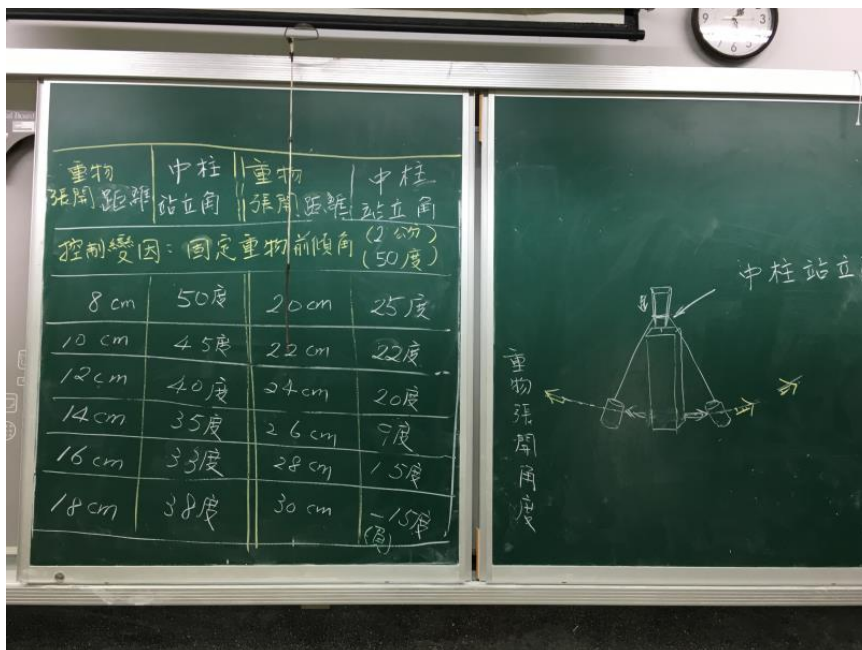 重物 中柱 重物 中柱
張開距離 站立角 張開距離 站立角
控制變因：固定重物前傾角 (2公分)
(50度)
8cm 50度 20cm 25度
10cm 45度 22cm 22度
12cm 40度 24cm 20度
14cm 35度 26cm 9度
16cm 33度 28cm 15度
18cm 38度 30cm -15度
(負)
中柱站立
重物張開角度
9 3
7 6 5